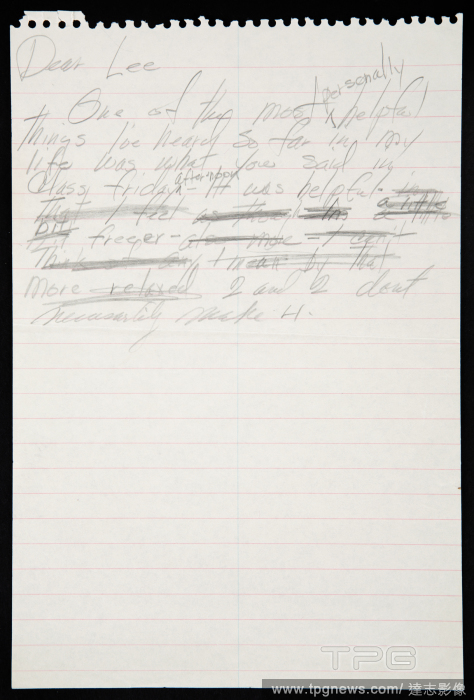 Dear Lee
personally
One of the most helpful
things I've heard so far in my
life was what you said in
afternoon
Class friday - It was helpful - in
that I feel a little
bit freeer -
I mean by that
more relaxed 2 and 2 dont
necessarily make 4.
TPG
www.tpgnews.com/ 達志影像